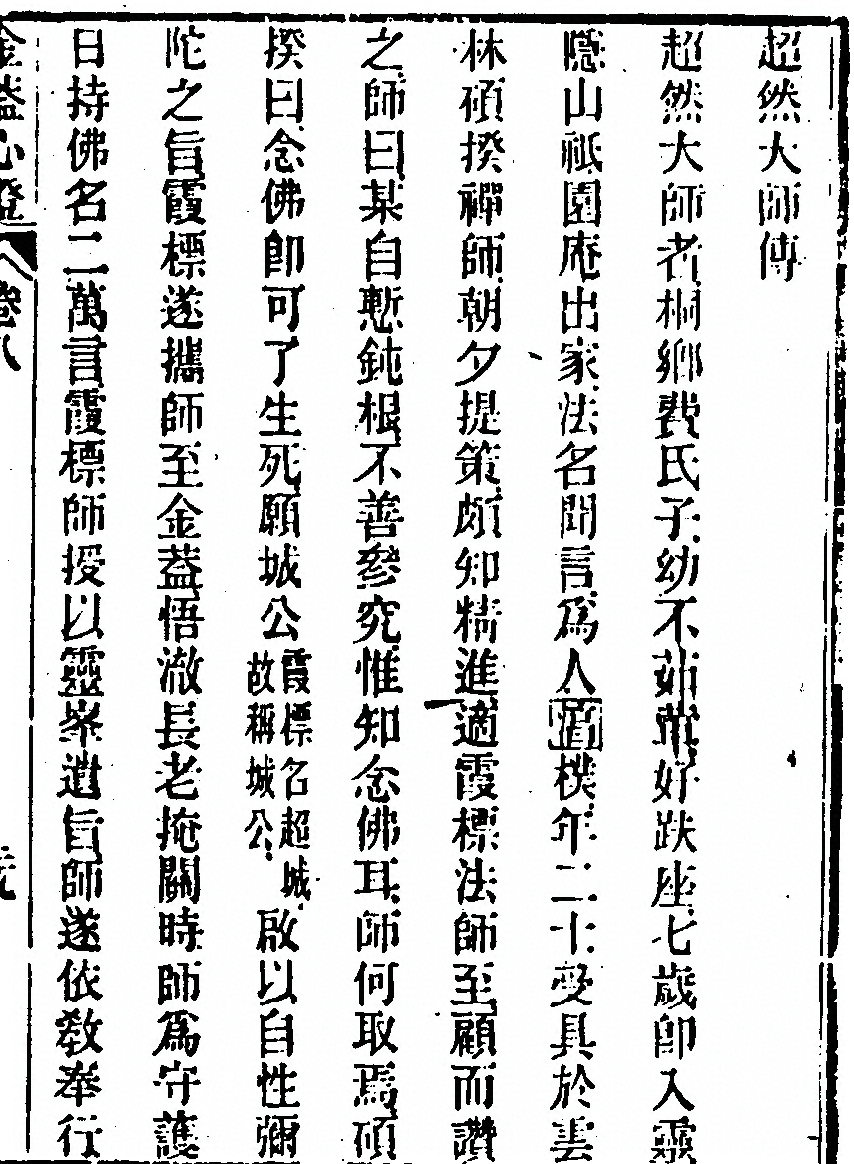 超然大師傳
超然大師者桐鄉費氏子幼不茹葷好趺座七歲卽入靈
隱山祇園庵出家法名聞言爲人渾樸年二十受具於雲
林碩揆禪師朝夕提策頗知精進適霞標法師至顧而讚
之師曰某自慙鈍根不善參究惟知念佛耳師何取焉碩
揆曰念佛卽可了生死願城公霞標名超城故稱城公啟以自性彌
陀之旨霞標遂攜師至金葢悟澈長老掩關時師爲守護
日持佛名二萬言霞標師授以靈峯遺旨師遂依敎奉行
金葢心燈 卷八